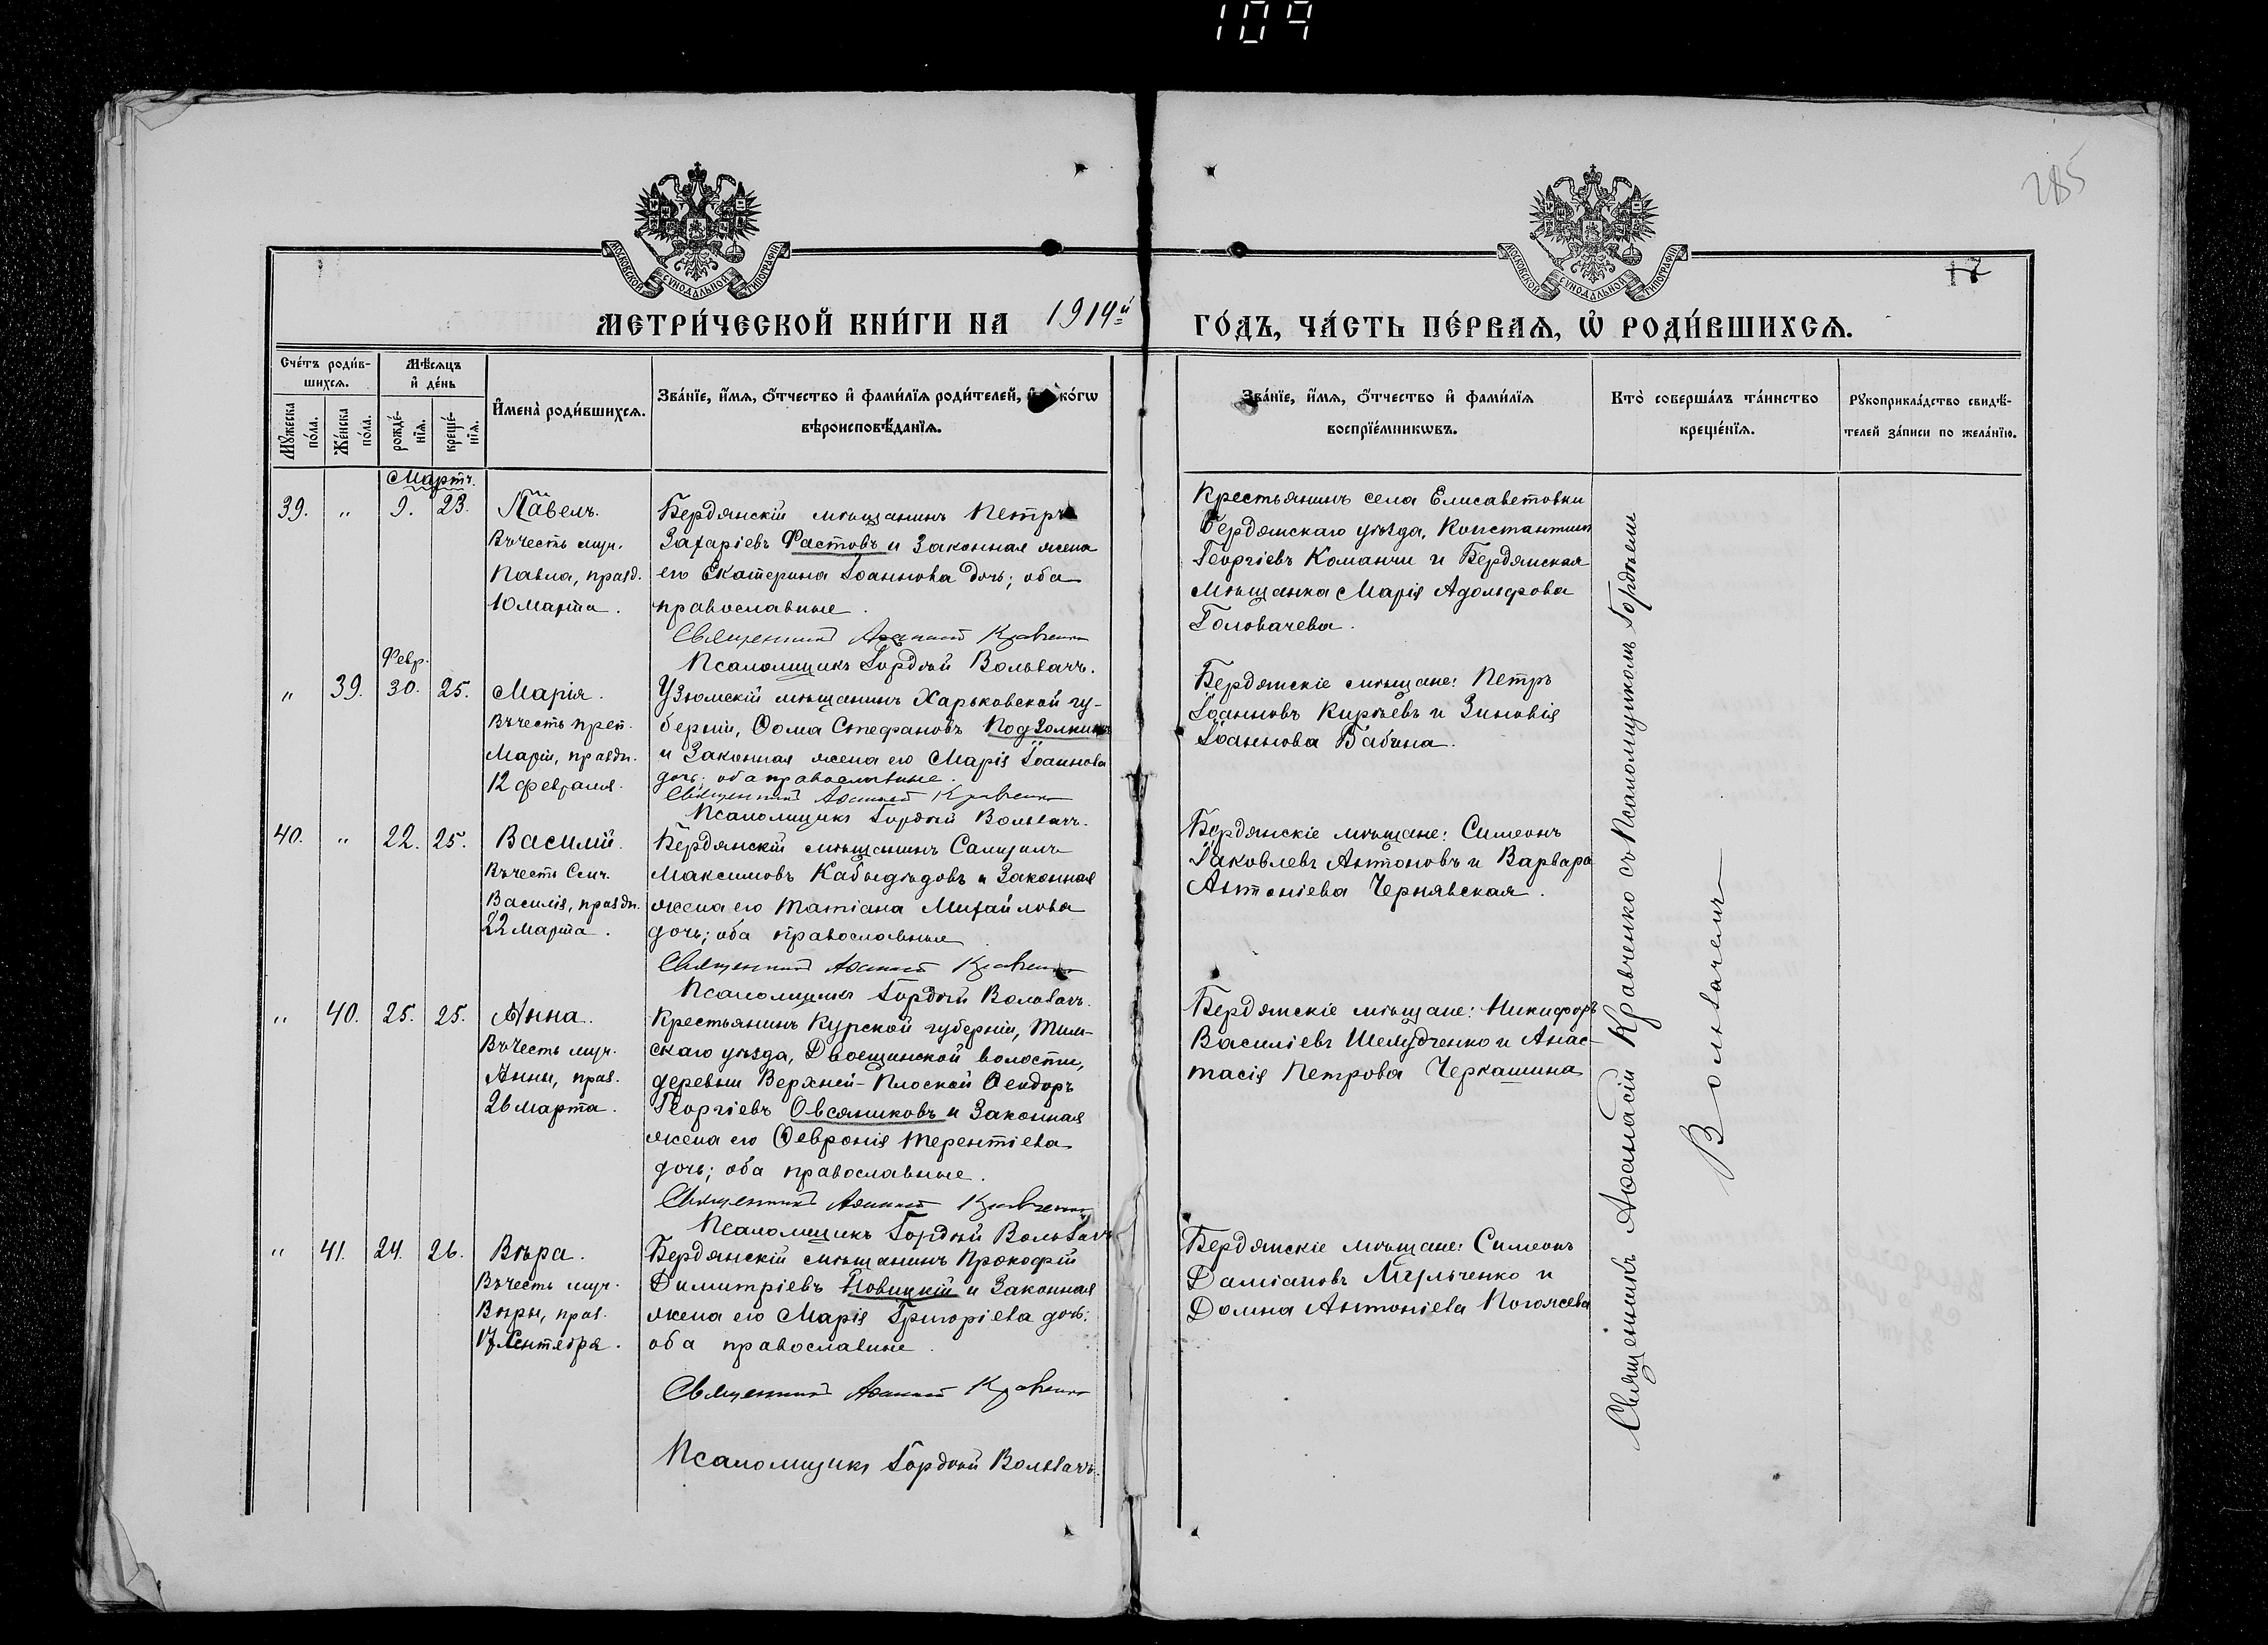 109
285
17
МОСКОВСКОЙ СѴНОДАЛЬНОЙ ТИПОГРАФІИ
МОСКОВСКОЙ СѴНОДАЛЬНОЙ ТИПОГРАФІИ
МЕТРИ́ЧЕСКОЙ КНИ́ГИ НА 1914й ГО́ДЪ, ЧА́СТЬ ПЕ́РВАѦ, Ѡ҆ РОДИ́ВШИХСѦ.
Сче́тъ роди́в-
шихсѧ.
Мꙋжеска по́ла.
Же́нска по́ла.
Мѣ́сѧцъ
и҆ де́нь
рожде́-
нїѧ.
креще́-
нїѧ.
И҆мена̀ роди́вшихсѧ.
Зва́нїе, и҆́мѧ, ѻ҆́тчество и҆ фами́лїѧ роди́телей, и҆ ко́гѡ
вѣроисповѣ́данїѧ.
Зва́нїе, и҆́мѧ, ѻ҆́тчество и҆ фами́лїѧ
воспрїе́мникѡвъ.
Кто̀ соверша́лъ та́инство
креще́нїѧ.
Рꙋкоприкла́дство свидѣ́-
телей за́писи по жела́нїю.
Мартъ.
39. " 9. 23. Павелъ.
Въ честь муч.
Павла, празд.
10 марта.
Бердянскій мѣщанинъ Петръ
Захаріевъ Фастовъ и законная жена
его Екатерина Іоаннова дочь; оба
православные.
Священникъ Аѳанасій Кравченко
Псаломщикъ Гордѣй Вольвачъ.
Крестьянинъ села Елисаветовки
Бердянскаго уѣзда, Константинъ
Георгіевъ Команчи и Бердянская
мѣщанка Марія Адольфова
Головачева.
Февр.
" 39. 30. 25. Марія.
Въ честь преп.
Маріи, праздн.
12 февраля.
Узюмскій мѣщанинъ Харьковской гу-
берніи, Ѳома Стефановъ Подзолкинъ
и законная жена его Марія Іоаннова
дочь; оба православные.
Священникъ Аѳанасій Кравченко
Псаломщикъ Гордѣй Вольвачъ.
Бердянскіе мѣщане: Петръ
Іоанновъ Кирѣевъ и Зиновія
Іоаннова Бабина.
40. " 22. 25. Василій.
Въ честь Смч.
Василія, праздн.
22 марта.
Бердянскій мѣщанинъ Самуилъ
Максимовъ Кабыдѣдовъ и законная
жена его Татіана Михайлова
дочь; оба православные
Священникъ Аѳанасій Кравченко
Псаломщикъ Гордѣй Вольвачъ.
Бердянскіе мѣщане: Симеонъ
Іаковлевъ Антоновъ и Варвара
Антоніева Чернявская.
" 40. 25. 25. Анна.
Въ честь муч.
Анны, праз.
26 марта.
Крестьянинъ Курской губерніи, Тим-
скаго уѣзда, Двоещинской волости,
деревни Верхней-Плоской Ѳеодоръ
Георгіевъ Овсяниковъ и законная
жена его Ѳевронія Терентіева
дочь; оба православные.
Священникъ Аѳанасій Кравченко
Псаломщикъ Гордѣй Вольвачъ
Бердянскіе мѣщане: Никифоръ
Василіевъ Шелудченко и Анас-
тасія Петрова Черкашина
" 41. 24. 26. Вѣра.
Въ честь муч.
Вѣры, праз.
17 Сентября.
Бердянскій мѣщанинъ Прокофій
Димитріевъ Новицкій и законная
жена его Марія Григоріева дочь;
оба православные.
Священникъ Аѳанасій Кравченко
Псаломщикъ Гордѣй Вольвачъ.
Бердянскіе мѣщане: Симеонъ
Даміановъ Мульченко и
Домна Антоніева Погожева
Священникъ Аѳанасій Кравченко съ Псаломщикомъ Гордѣемъ
Вольвачемъ